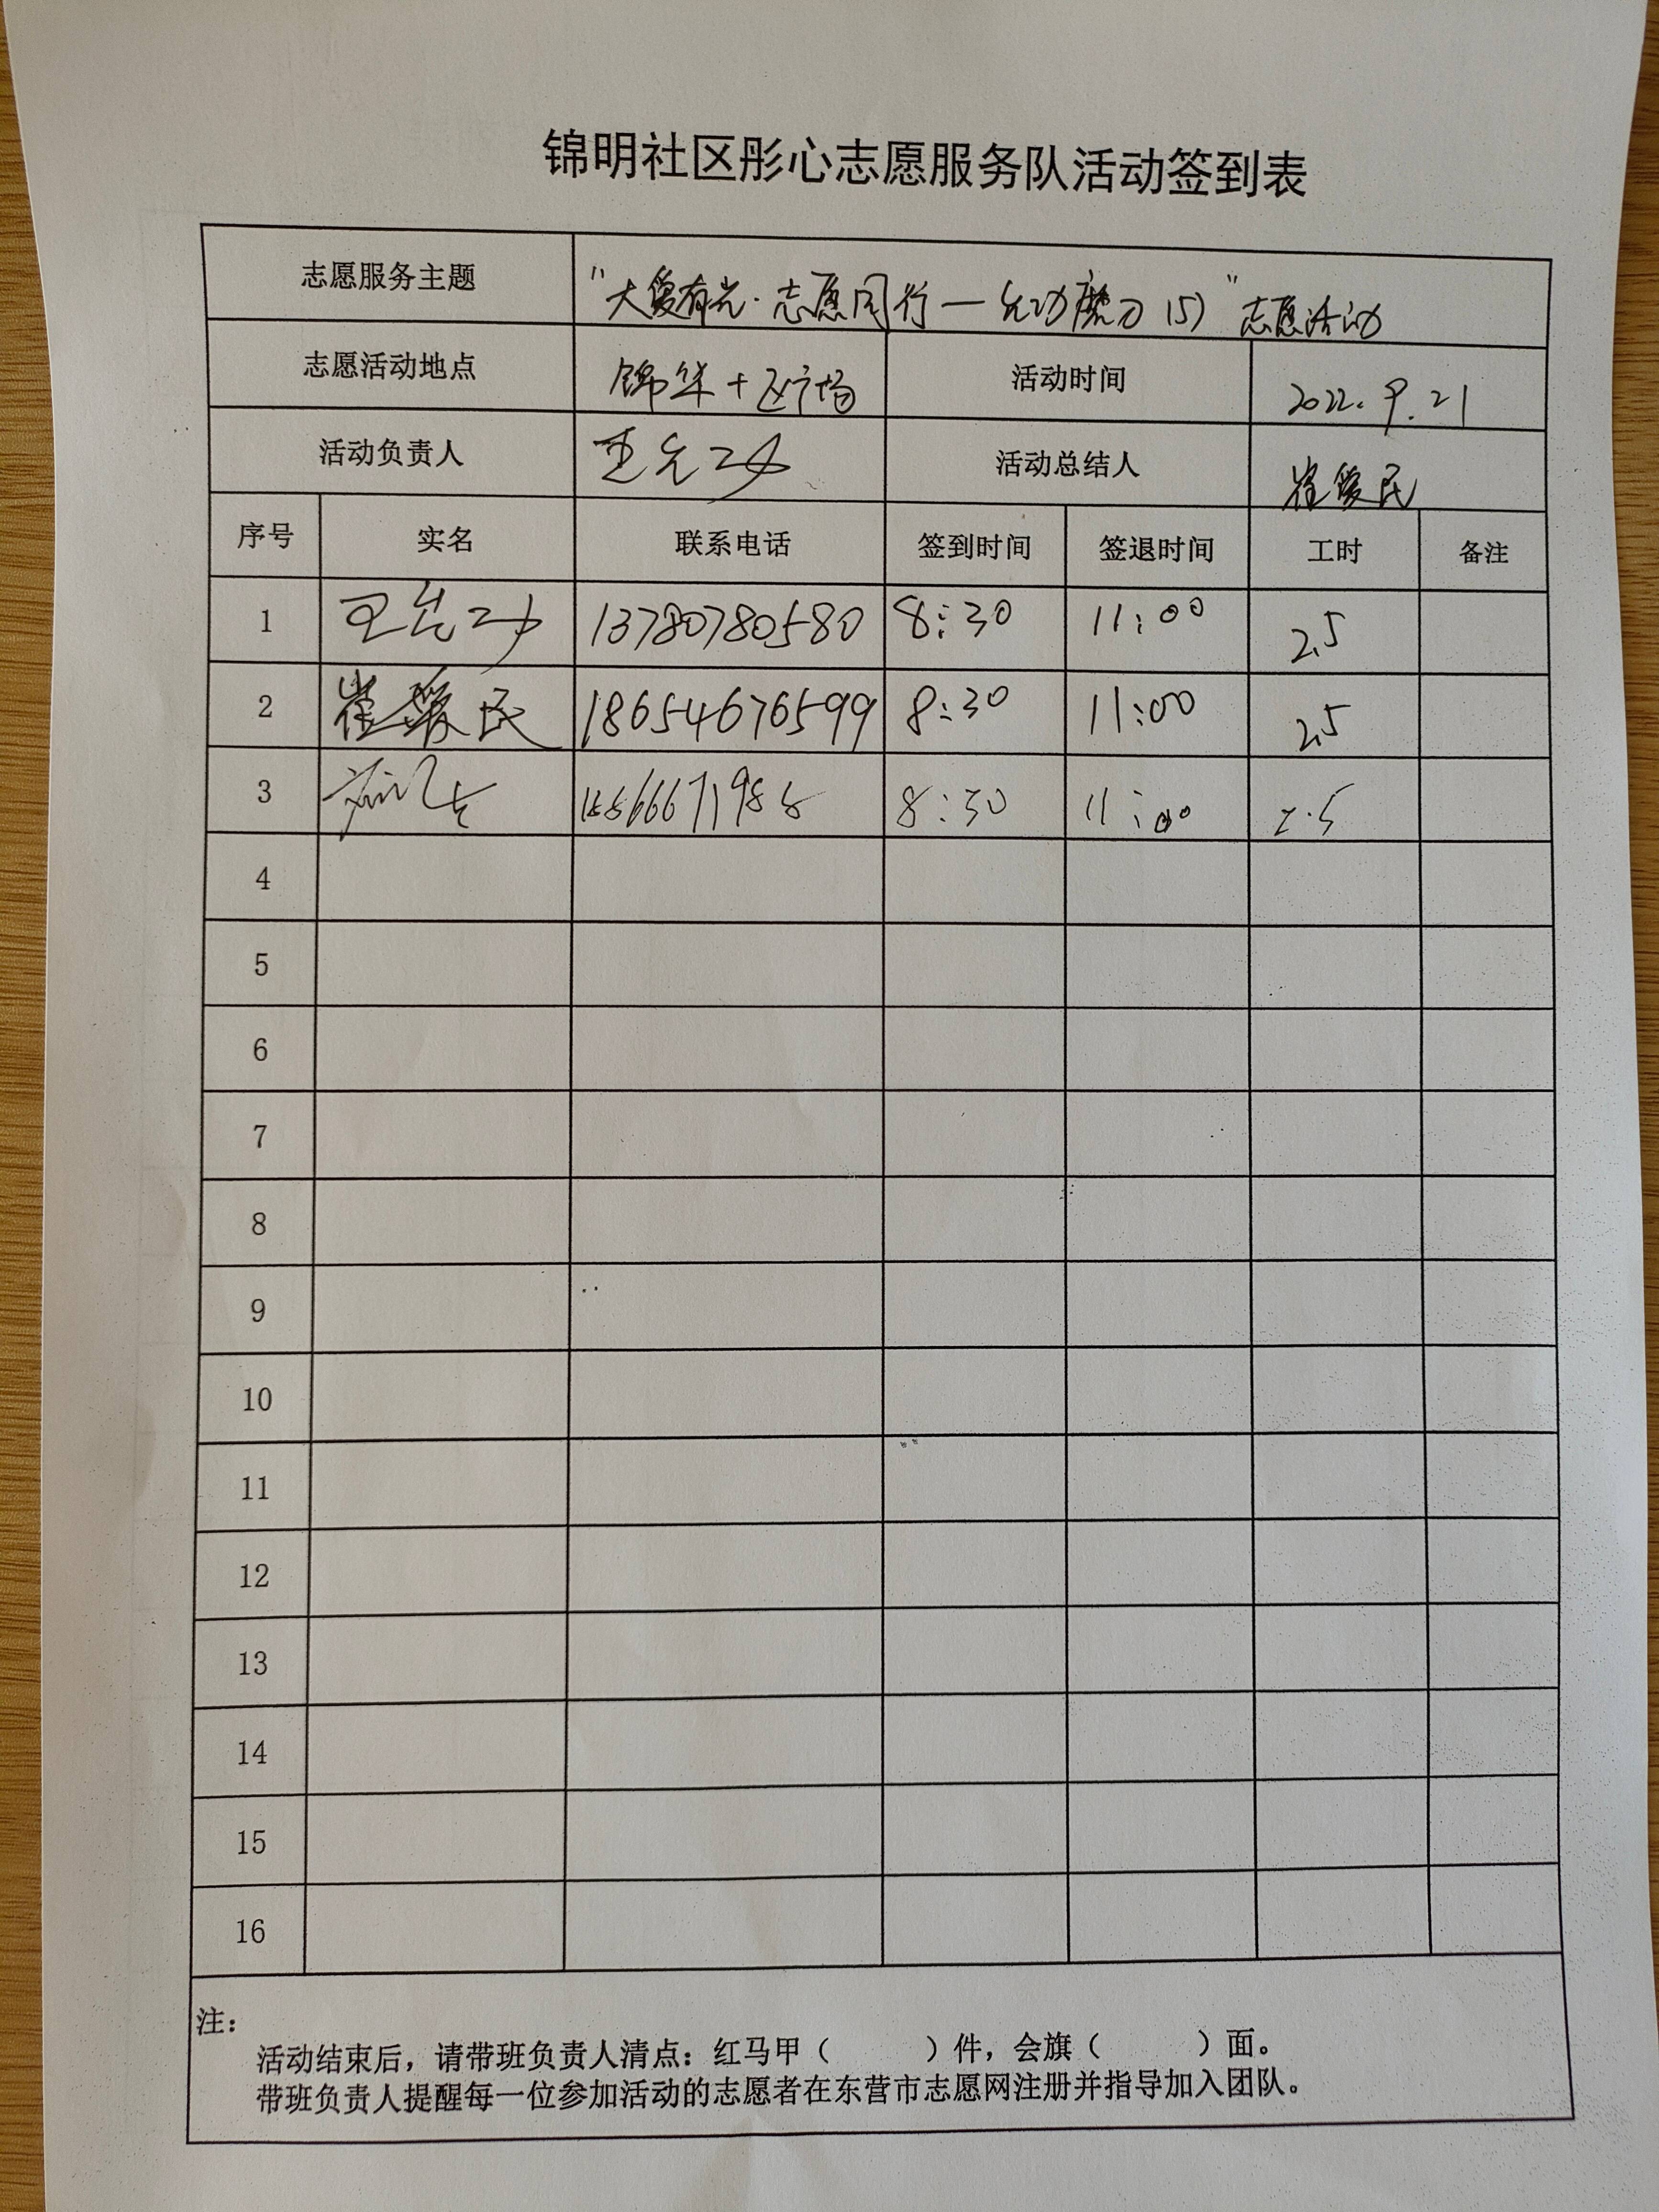 锦明社区彤心志愿服务队活动签到表
志愿服务主题 "大爱有光·志愿同行—允功磨刀(5)"志愿活动
志愿活动地点 锦华十区广场 活动时间 2022.9.21
活动负责人 王允功 活动总结人 崔爱民
序号 实名 联系电话 签到时间 签退时间 工时 备注
1 王允功 13780780580 8:30 11:00 2.5
2 崔爱民 18654676599 8:30 11:00 2.5
3 8:30 11:00 2.5
4
5
6
7
8
9
10
11
12
13
14
15
16
注:
活动结束后，请带班负责人清点：红马甲（ ）件，会旗（ ）面。
带班负责人提醒每一位参加活动的志愿者在东营市志愿网注册并指导加入团队。